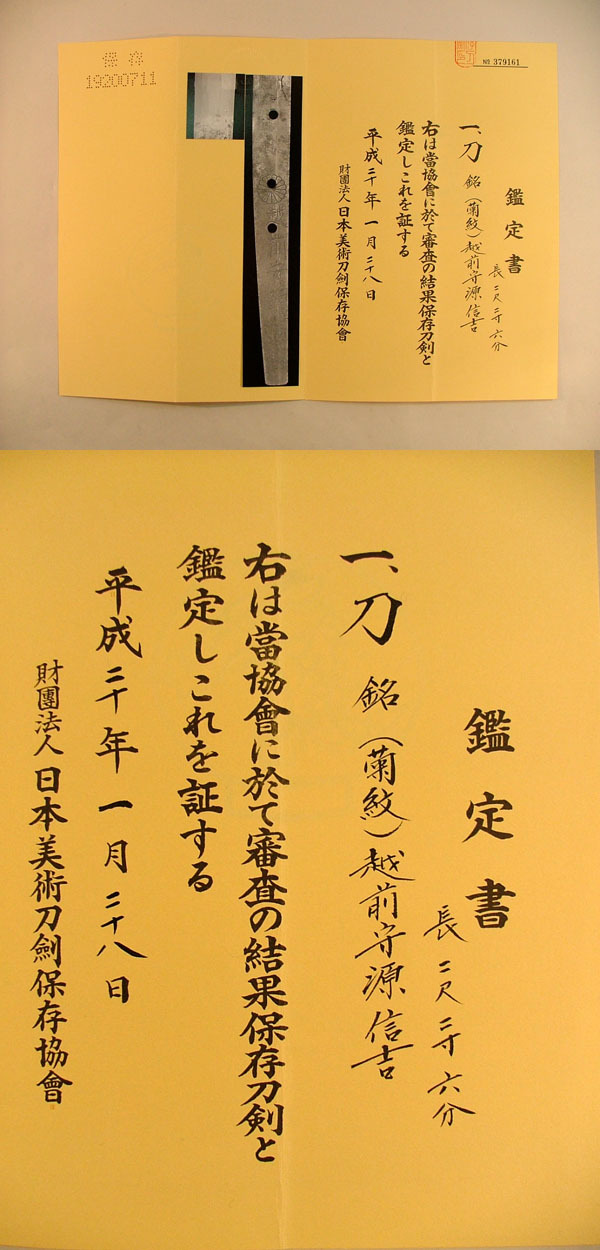 保存
19200711
№ 379161
鑑定書
長 二尺二寸六分
一、刀 銘(菊紋)越前守源信吉
右は當協會に於て審査の結果保存刀剣と
鑑定しこれを証する
平成二十年一月二十八日
財團法人 日本美術刀劍保存協會
鑑定書
長 二尺二寸六分
一、刀 銘(菊紋)越前守源信吉
右は當協會に於て審査の結果保存刀剣と
鑑定しこれを証する
平成二十年一月二十八日
財團法人 日本美術刀劍保存協會